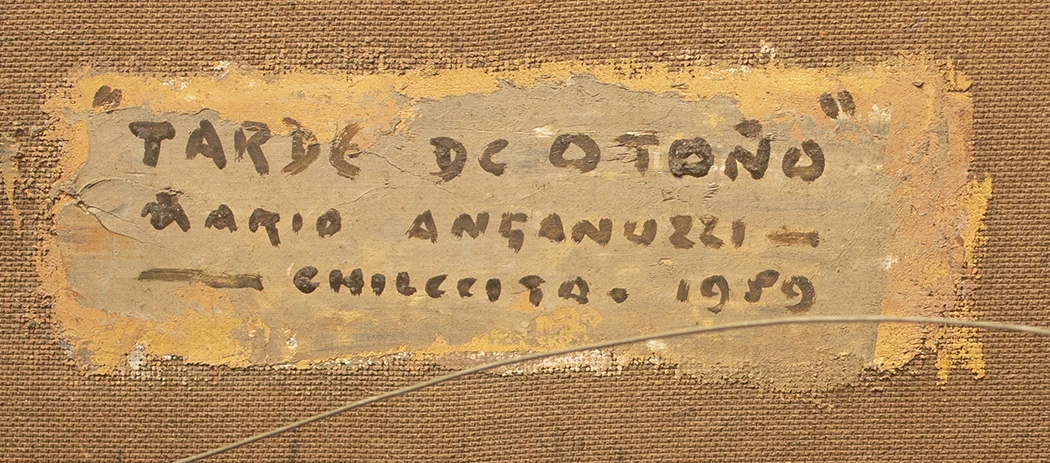 "TARDE DE OTOÑO"
MARIO ANGANUZZI —
— CHILECITO. 1959